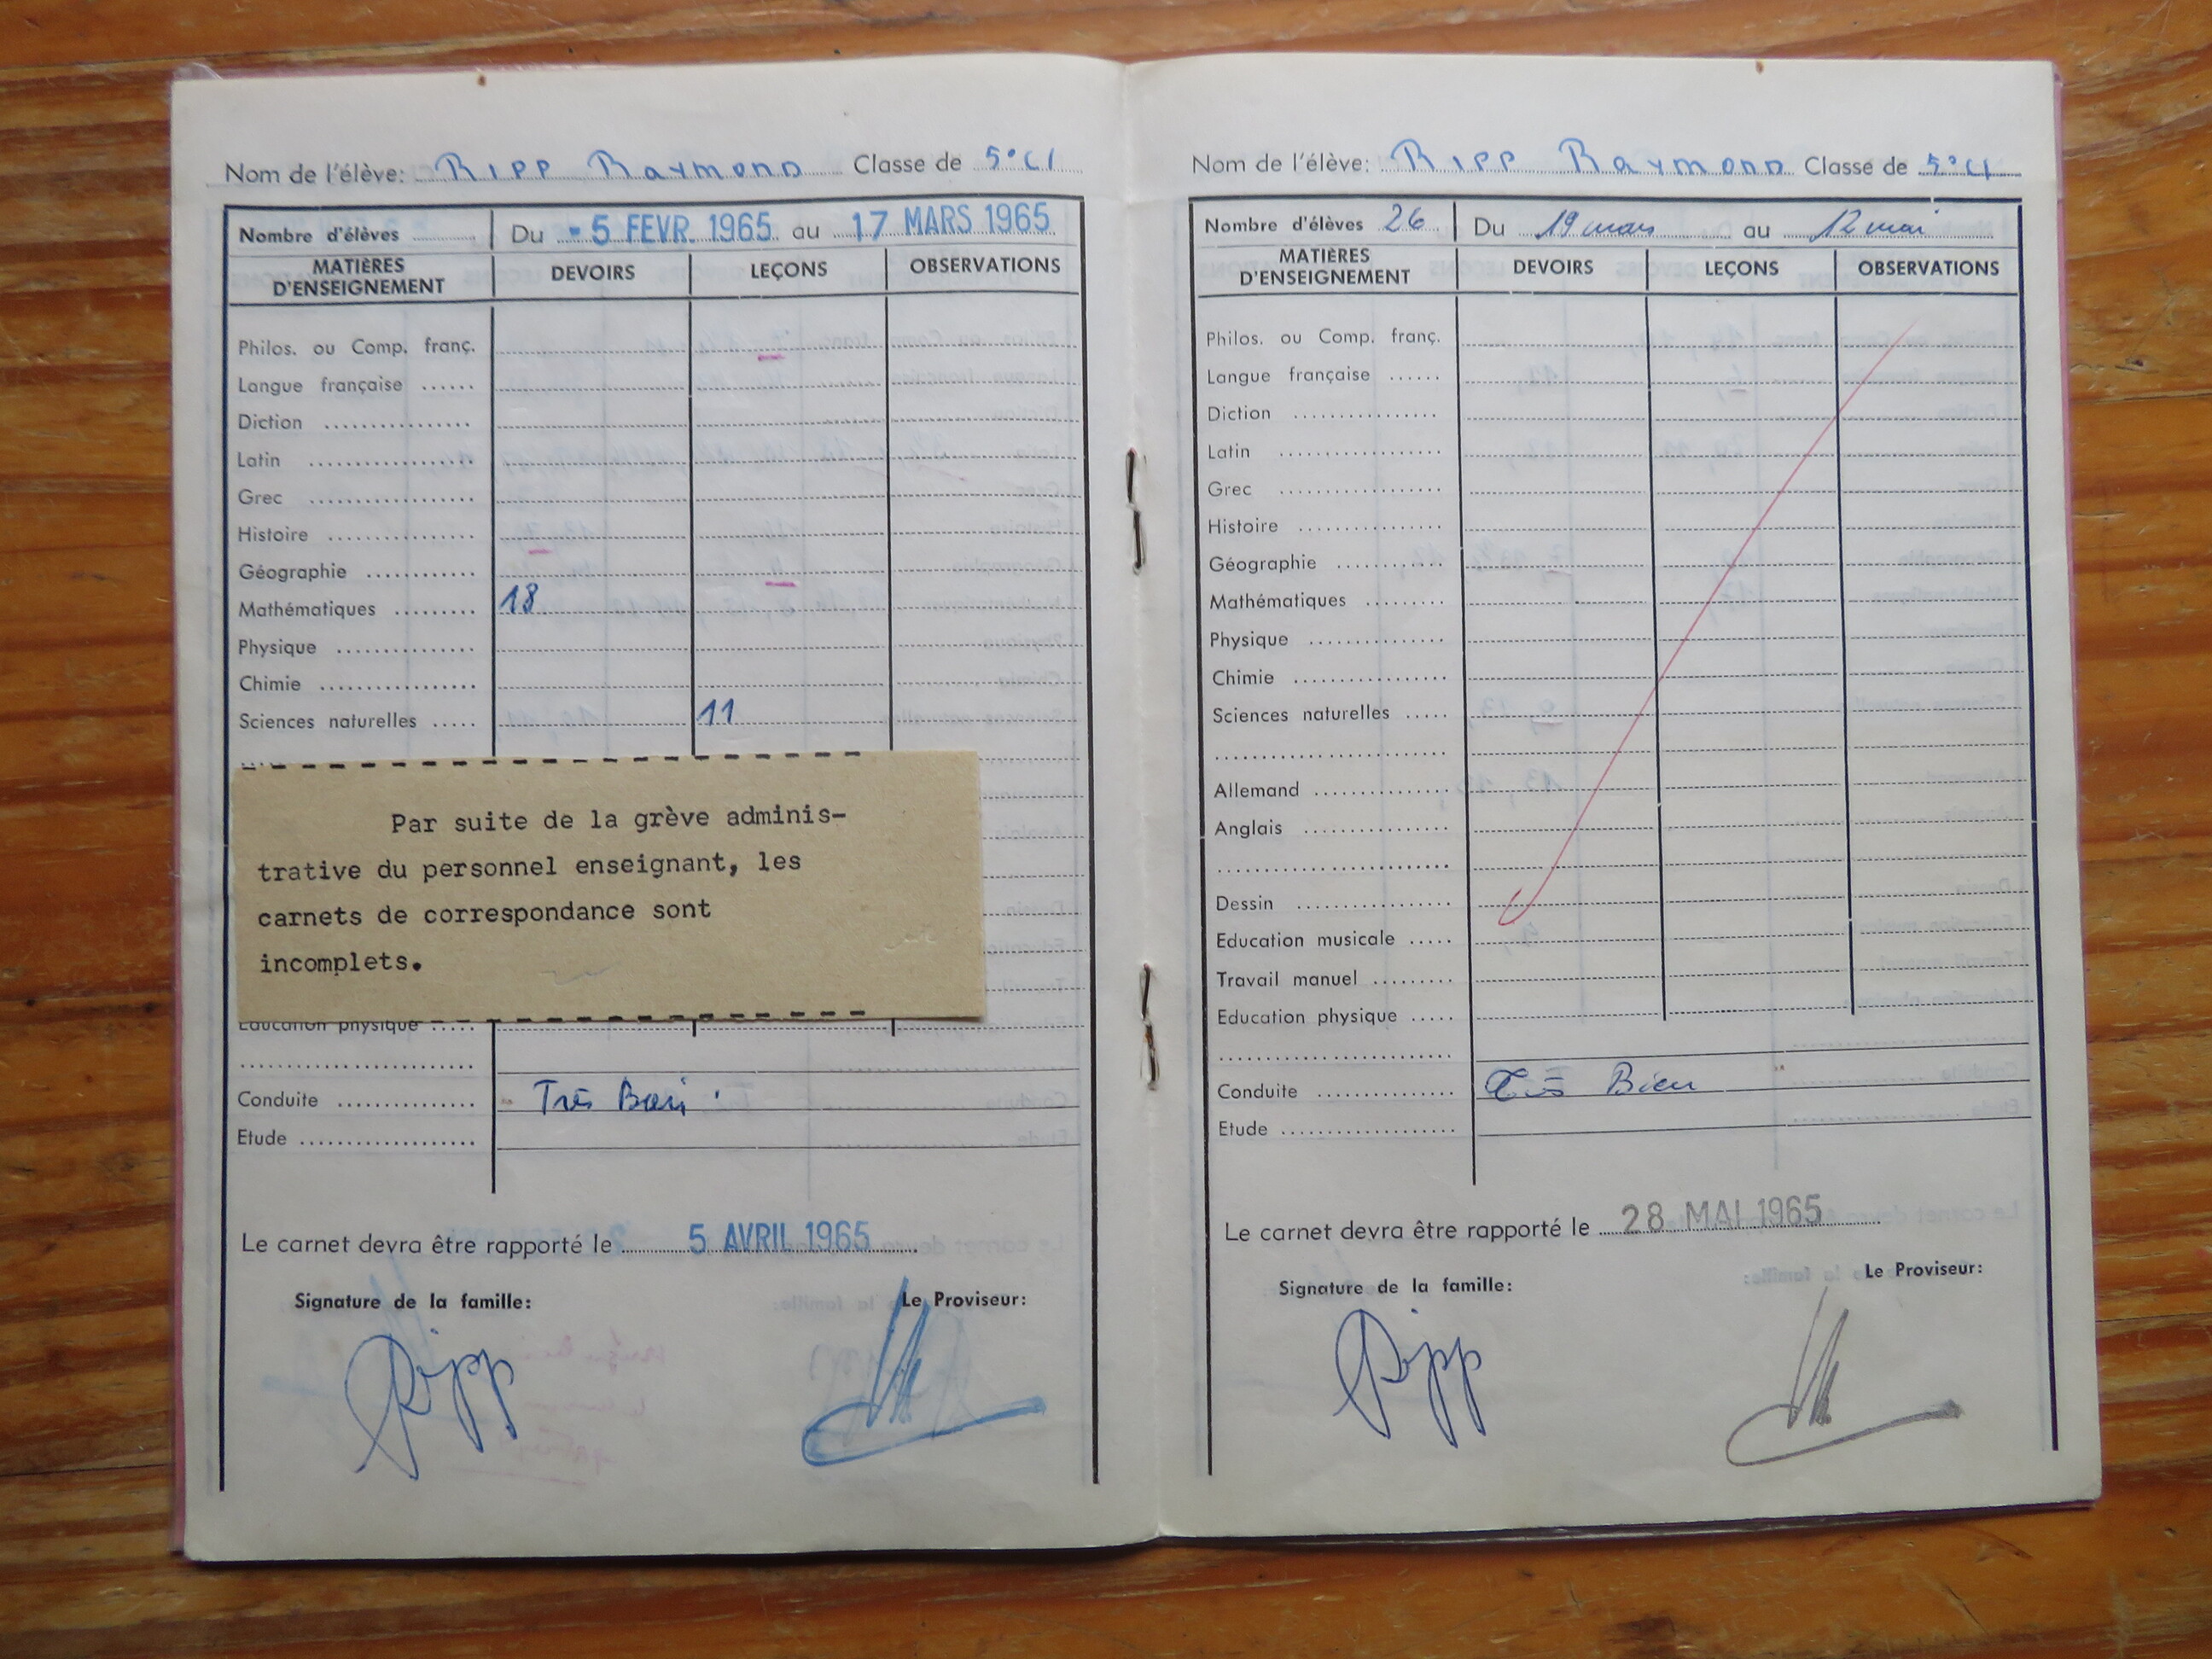 Nom de l'élève: Ripp Raymond Classe de 5° C1
Nombre d'élèves Du -5 FEVR. 1965 au 17 MARS 1965
MATIÈRES D'ENSEIGNEMENT DEVOIRS LEÇONS OBSERVATIONS
Philos. ou Comp. franç.
Langue française
Diction
Latin
Grec
Histoire
Géographie
Mathématiques 18
Physique
Chimie
Sciences naturelles 11
Par suite de la grève adminis-
trative du personnel enseignant, les
carnets de correspondance sont
incomplets.
Education physique
Conduite Très Bien
Etude
Le carnet devra être rapporté le 5 AVRIL 1965
Signature de la famille: Le Proviseur:
Ripp
Nom de l'élève: Ripp Raymond Classe de 5° C1
Nombre d'élèves 26 Du 19 mars au 12 mai
MATIÈRES D'ENSEIGNEMENT DEVOIRS LEÇONS OBSERVATIONS
Philos. ou Comp. franç.
Langue française
Diction
Latin
Grec
Histoire
Géographie
Mathématiques
Physique
Chimie
Sciences naturelles
Allemand
Anglais
Dessin
Education musicale
Travail manuel
Education physique
Conduite Très Bien
Etude
Le carnet devra être rapporté le 28 MAI 1965
Signature de la famille: Le Proviseur:
Ripp